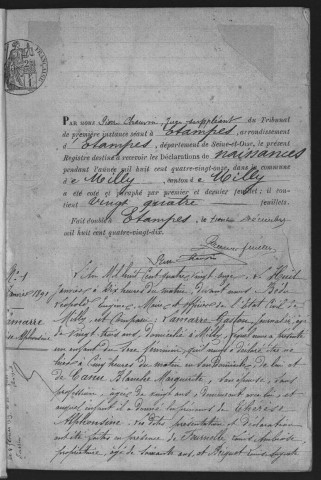 FRANÇAISE
PAR NOUS Pierre Chauvin, Juge suppléant du Tribunal
de première instance séant à Etampes, arrondissement
d'Etampes, département de Seine-et-Oise, le présent
Registre destiné à recevoir les Déclarations de naissances
pendant l'année mil huit cent quatre-vingt-onze, dans la commune
de Milly, canton de Milly
a été coté et paraphé par premier et dernier feuillet; il con-
tient vingt quatre feuillets.
Fait double à Etampes, le Décembre
mil huit cent quatre-vingt-dix.
N° 1
Janvier 1891
L'An Mil huit cent quatre vingt onze, le Huit
Janvier, à dix heures du matin, devant nous,
Eugène, Maire et officier de l'Etat Civil de
Milly, est comparu Lamarre Gaston, journalier, âgé
Lamarre
Alphonsine
de vingt trois ans, domicilié à Milly, lequel nous a présenté
un enfant du sexe féminin,
à Cinq heures du matin en son Domicile, de lui et
de Blanche Marguerite, son épouse, sans
profession, âgée de vingt ans,
auquel enfant il a donné les prénoms de Thérèse
Alphonsine, Les dites présentation et déclaration
ont été faites en présence de Louis Ambroise,
propriétaire, âgé de soixante ans, et Louis Auguste